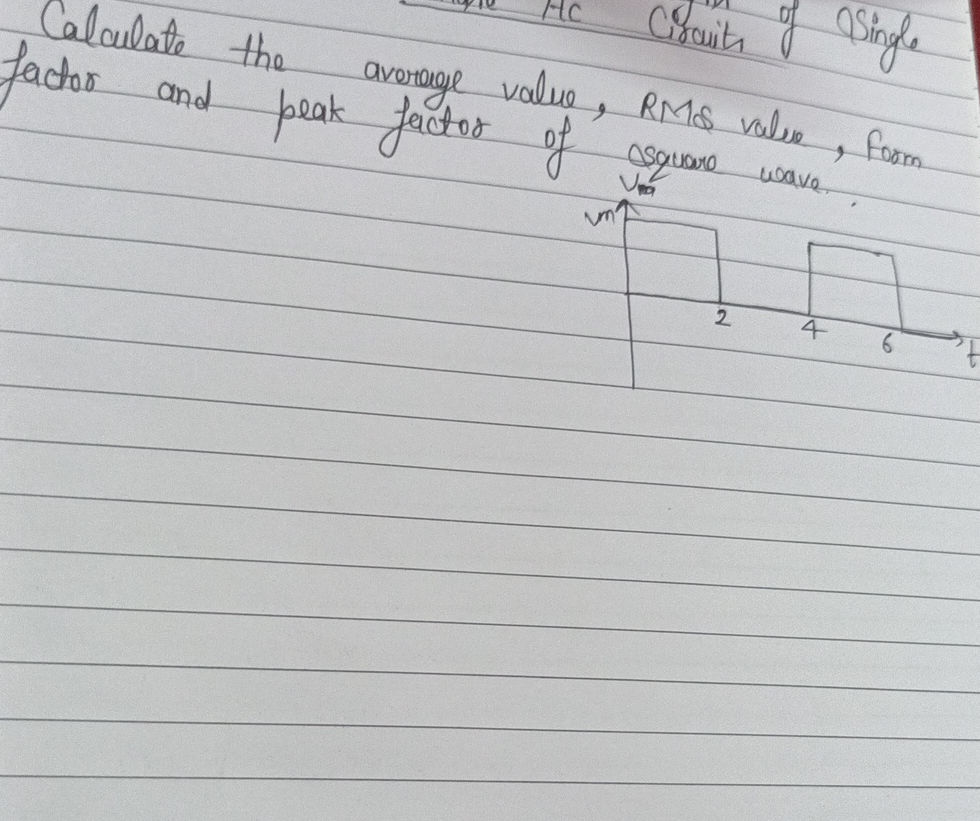 AC Circuits of Single
Calculate the average value, RMS value, Form
factor and peak factor of square wave.
Vm
2
4
6
t